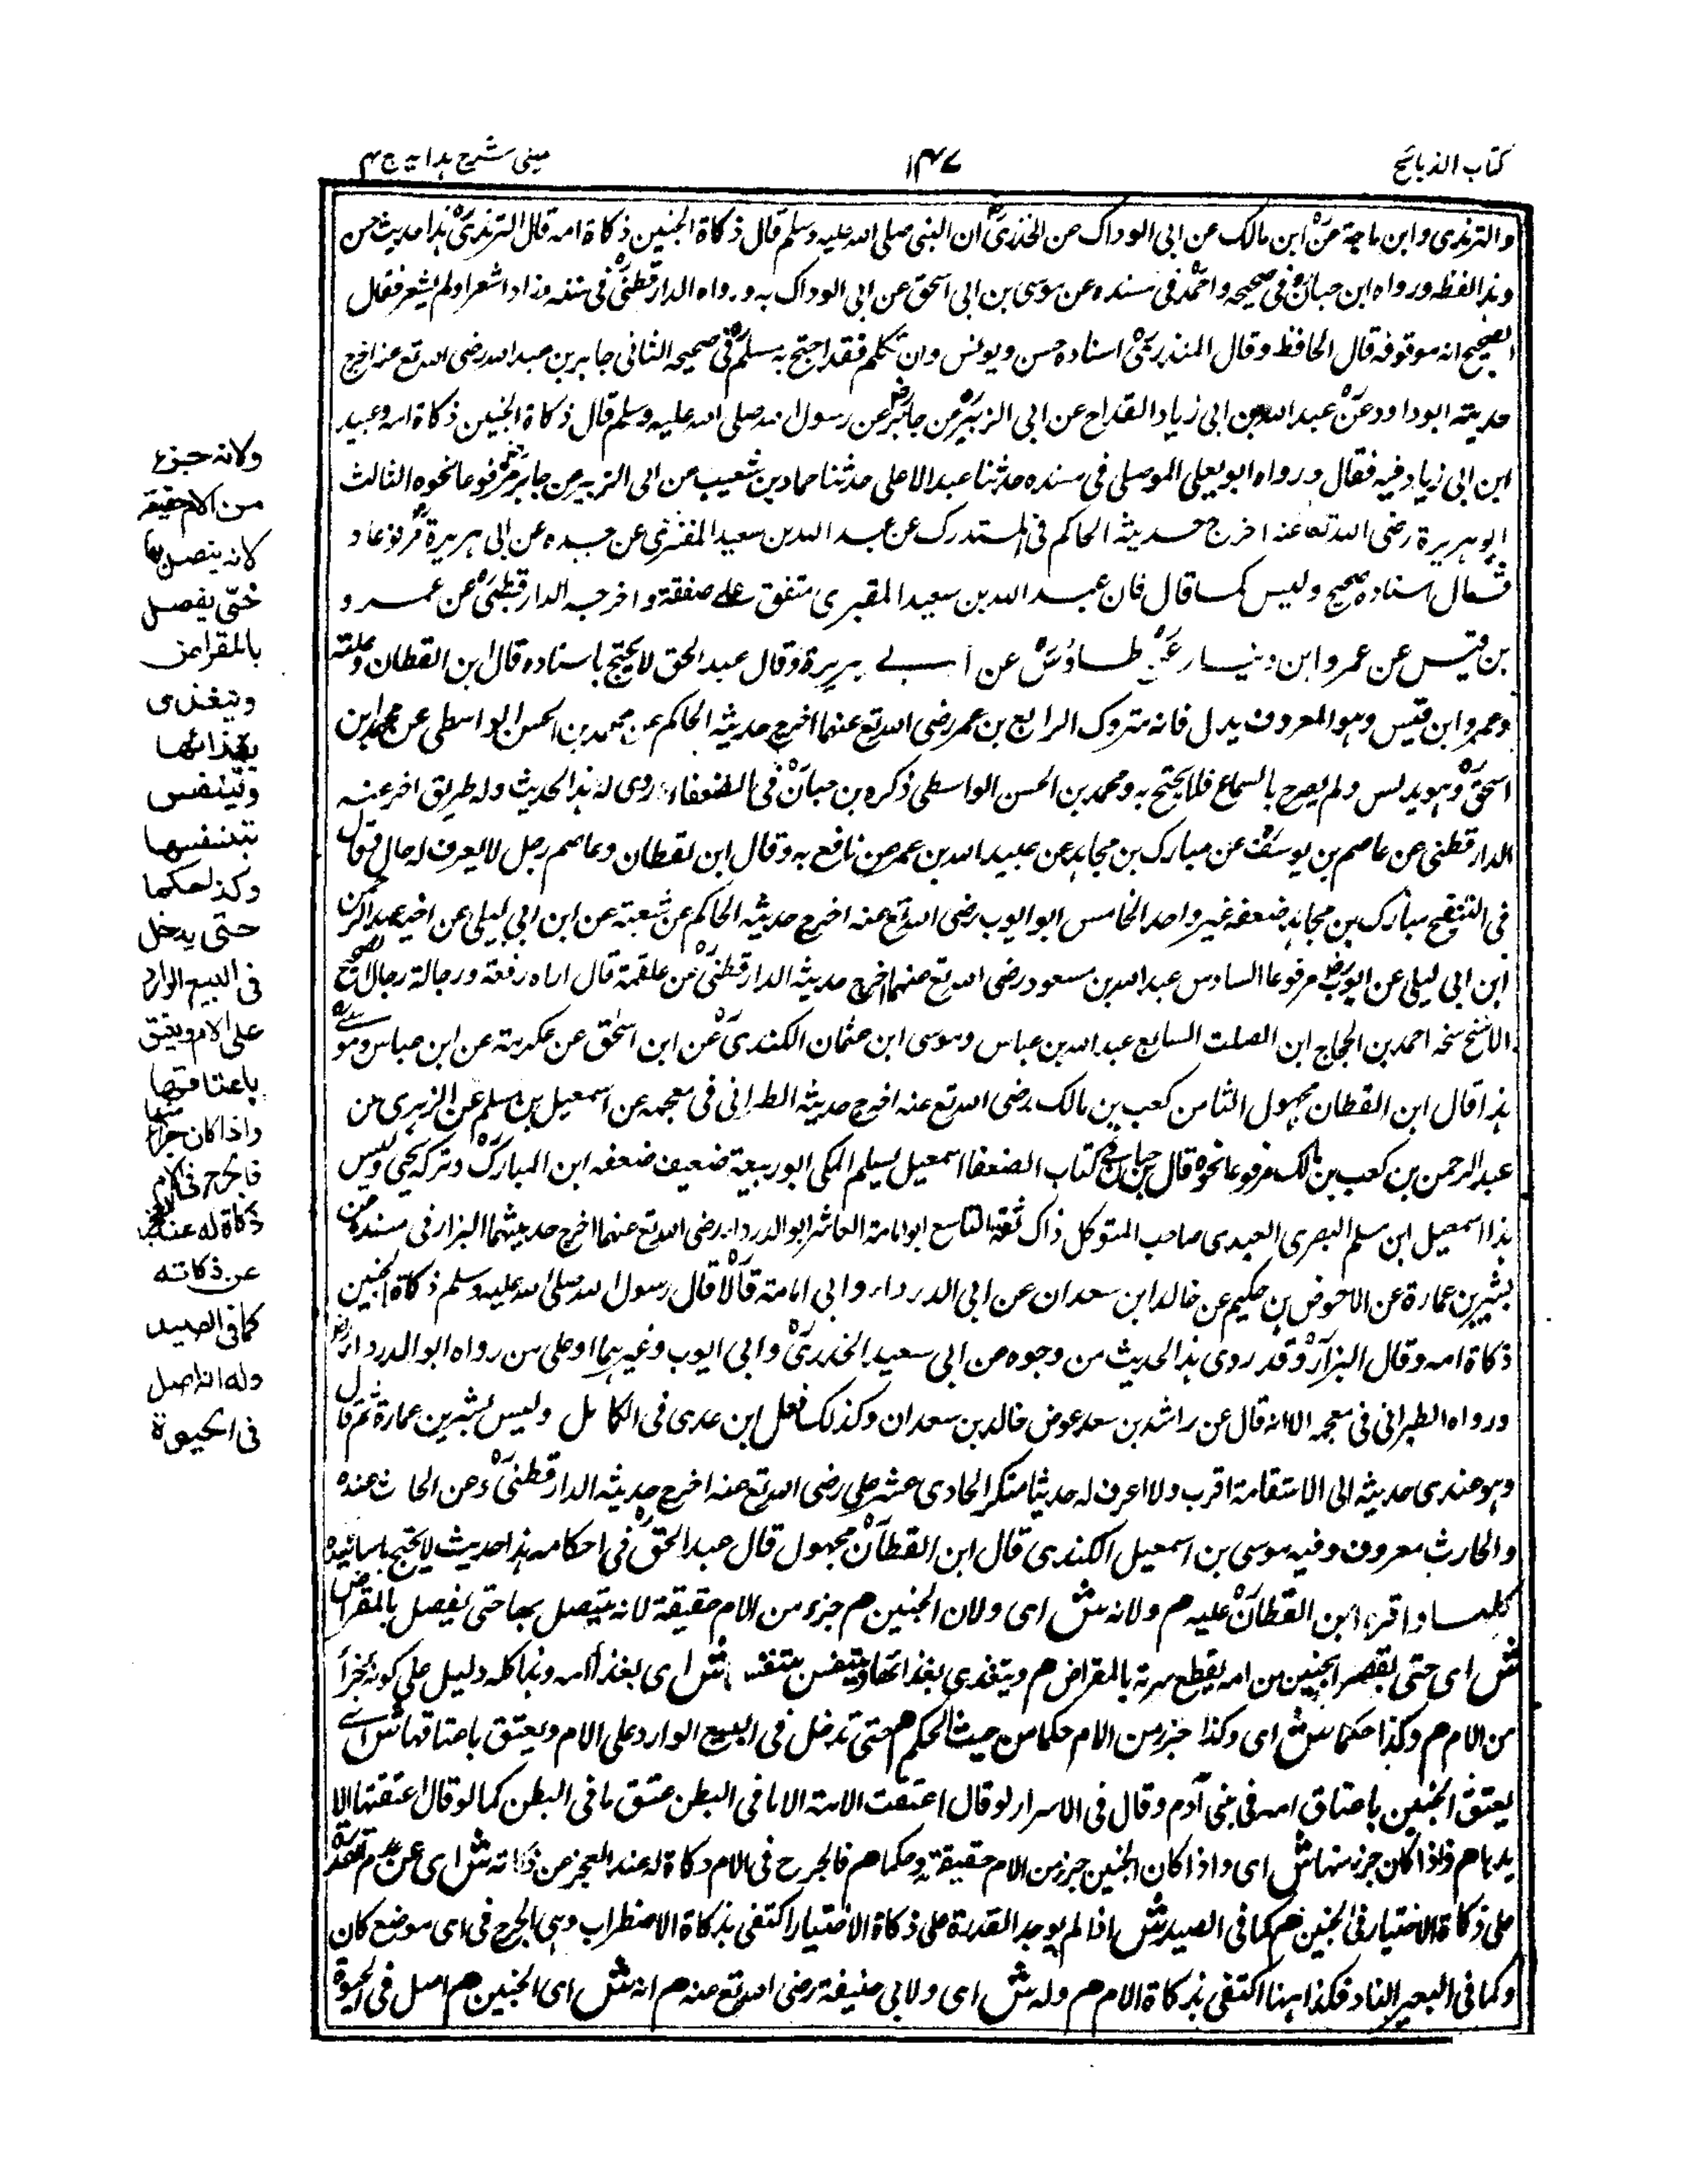 كتاب الذبائح
١٤٧
عینی شرح ہدایہ ج ٤
والترمذی وابن ماجة عن ابن مالك عن ابی الوداك عن الخدری ان النبی صلی الله علیه وسلم قال ذكاة الجنین ذكاة امه قال الترمذی هذا حدیث حسن
وهذا لفظه ورواه ابن حبان فی صحیحه واحمد فی مسنده عن موسی بن ابی اسحق عن ابی الوداك به ورواه الدارقطنی فی سننه وزاد اشعر اولم یشعر فقال
الصحیح انه موقوفه قال الحافظ وقال المنذری اسناده حسن ویونس وان تكلم فقد احتج به مسلم فی صحیحه الثانی جابر بن عبد الله رضی الله تع عنه اخرج
حدیثه ابو داود عن عبید الله بن ابی زیاد القداح عن ابی الزبیر عن جابر عن رسول الله صلی الله علیه وسلم قال ذكاة الجنین ذكاة امه وعبید
ابن ابی زیاد فیه فقال ورواه ابو یعلی الموصلی فی مسنده حدثنا عبد الاعلی حدثنا حماد بن شعیب عن ابی الزبیر عن جابر مرفوعا نحوه الثالث
ابو هریرة رضی الله تعا عنه اخرج حدیثه الحاكم فی المستدرك عن عبد الله بن سعید المقبری عن جده عن ابی هریرة مرفوعا و
فقال اسناده صحیح ولیس كما قال فان عبد الله بن سعید المقبری متفق علی ضعفه واخرجه الدارقطنی عن عمرو
بن قیس عن عمرو ابن دینار عن طاوس عن ابی هریرة وقال عبد الحق لا یحتج باسناده قال ابن القطان وعلته
وعمرو ابن قیس وهو المعروف بدل فانه متروك الرابع بن عمر رضی الله تع عنهما اخرج حدیثه الحاكم عن محمد بن الحسن الواسطی عن محمد ابن
اسحق وهو یدلس ولم یصرح بالسماع فلا یحتج به ومحمد بن الحسن الواسطی ذكره بن حبان فی الضعفاء وروی له هذا الحدیث وله طریق اخر عنه
الدارقطنی عن عاصم بن یوسف عن مبارك بن مجاهد عن عبید الله بن عمر عن نافع به وقال ابن لقطان وعاصم رجل لا یعرف له حال وقال
فی التنقیح مبارك بن مجاهد ضعفه غیر واحد الخامس ابو ایوب رضی الله تع عنه اخرج حدیثه الحاكم عن شعبة عن ابن ابی لیلی عن اخیه عبد الرحمن
ابن ابی لیلی عن ایوب مرفوعا السادس عبد الله بن مسعود رضی الله تع عنهما اخرج حدیثه الدارقطنی عن علقمة قال اراه رفعه ورجاله رجال الصحیح
الا شیخ شیخه احمد بن الحجاج ابن الصلت السابع عبد الله بن عباس وموسی ابن عثمان الكندی عن ابن اسحق عن عكرمة عن ابن عباس وموسی
هذا قال ابن القطان مجهول الثامن كعب بن مالك رضی الله تع عنه اخرج حدیثه الطبرانی فی معجمه عن اسمعیل بن مسلم عن الزهری عن
عبد الرحمن بن كعب بن مالك مرفوعا نحوه قال بن حبان فی كتاب الضعفا اسمعیل بن مسلم المكی ابو ربیعة ضعیف ضعفه ابن المبارك وتركه یحیی ولیس
هذا اسمعیل ابن مسلم البصری العبدی صاحب المتوكل ذاك ثقة التاسع ابو امامة العاشر ابو الدرداء رضی الله تع عنهما اخرج حدیثهما البزار فی مسنده عن
بشیر بن عمارة عن الاحوص بن حكیم عن خالد ابن سعدان عن ابی الدرداء وابی امامة قالا قال رسول الله صلی الله علیه وسلم ذكاة الجنین
ذكاة امه وقال البزار وقد روی هذا الحدیث من وجوه عن ابی سعید الخدری وابی ایوب وغیرهما اوعلی من رواه ابو الدرداء
ورواه الطبرانی فی معجمه الا انه قال عن راشد بن سعد عوض خالد بن سعدان وكذلك فعل ابن عدی فی الكامل ولیس بشیر بن عمارة ثم قال
وهو عندی حدیثه الی الاستقامة اقرب ولا اعرف له حدیثا منكرا الحادی عشر علی رضی الله تع عنه اخرج حدیثه الدارقطنی وعن الحارث عنه
والحارث معروف وفیه موسی بن اسمعیل الكندی قال ابن القطان مجهول قال عبد الحق فی احكامه هذا حدیث لا یحتج باسانیده
كلها واقره ابن القطان علیه م ولانه ش ای ولان الجنین م جزء من الام حقیقة لانه یتصل بها حتی یفصل بالمقراض
ش ای حتی یفصل الجنین من امه بقطع سرته بالمقراض م ویتغذی بغذائها ویتنفس بتنفسها ش ای بغذا امه وهذا كله دلیل علی كونه جزأ
من الام م وكذا حكما ش ای وكذا جزء من الام حكما من حیث الحكم م حتی تدخل فی البیع الوارد علی الام ویعتق باعتاقها ش ای
یعتق الجنین باعتاق امه فی بنی آدم وقال فی الاسرار لو قال اعتقت الامة الا ما فی البطن عتق ما فی البطن كما لو قال اعتقتها الا
یدها م واذا كان جزء منها ش ای واذا كان الجنین جزء من الام حقیقة وحكما م فالجرح فی الام ذكاة له عند العجز عن ذكاته ش ای عن عدم القدرة
علی ذكاة الاختیار فی الجنین م كما فی الصید ش اذا لم یوجد القدرة علی ذكاة الاختیار اكتفی بذكاة الاضطراب وهی الجرح فی ای موضع كان
وكما فی البعیر الناد فكذا ههنا اكتفی بذكاة الام م وله ش ای ولابی حنیفة رضی الله تع عنه م انه ش ای الجنین م اصل فی الحیوة
ولانه جزء
من الام حقیقة
لانه یتصل بها
حتی یفصل
بالمقراض
ویتغذی
بغذائها
ویتنفس
بتنفسها
وكذا حكما
حتی یدخل
فی البیع الوارد
علی الام ویعتق
باعتاقها
واذا كان جزأ منها
فالجرح فی الام
ذكاة له عند العجز
عن ذكاته
كما فی الصید
وله انه اصل
فی الحیوة